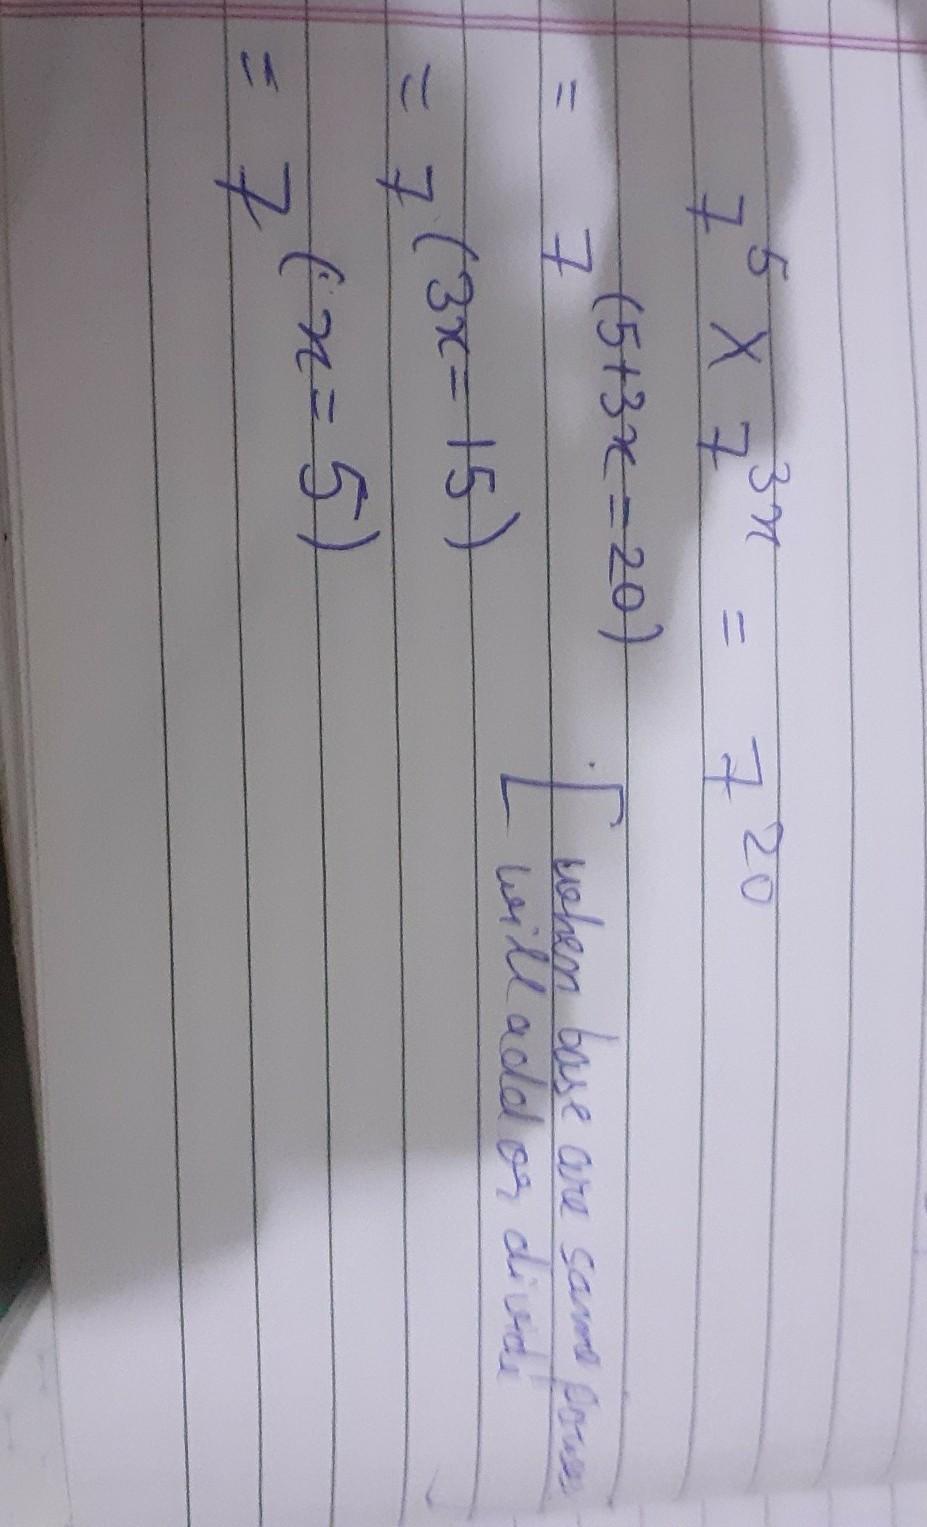 7⁵ X 7³ˣ = 7²⁰
= 7^(5+3x=20) [when base are same power
will add or divide
= 7^(3x=15)
= 7^(x=5)